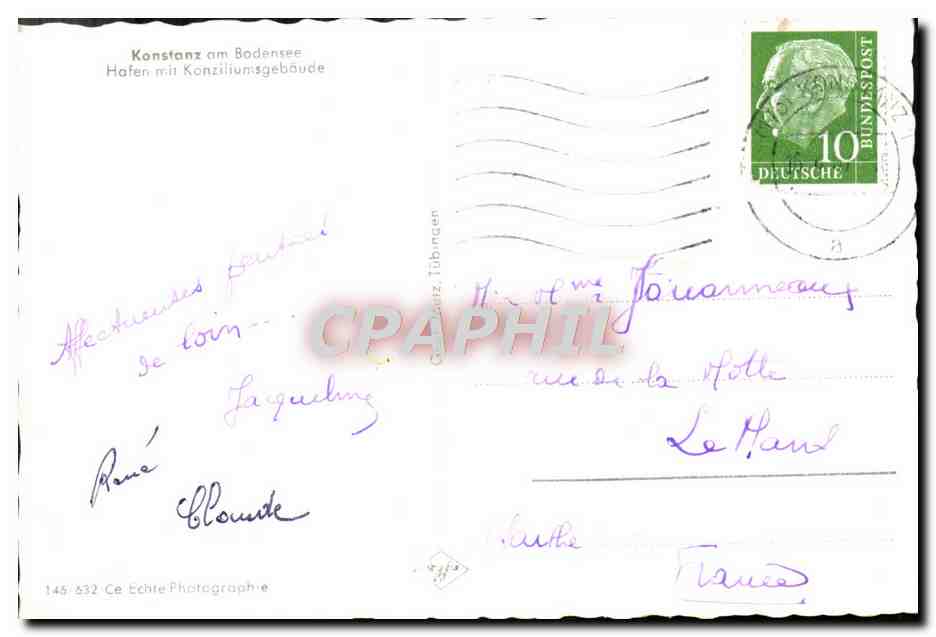 Konstanz am Bodensee
Hafen mit Konziliumsgebäude
Affectueuses pensées
de loin...
Jacqueline
René
Claude
146 632 Ce Echte Photographie
Tübingen
CPAPHIL
10
DEUTSCHE
BUNDESPOST
a
Mr Mme
rue de la Motte
Le Mans
Sarthe
France